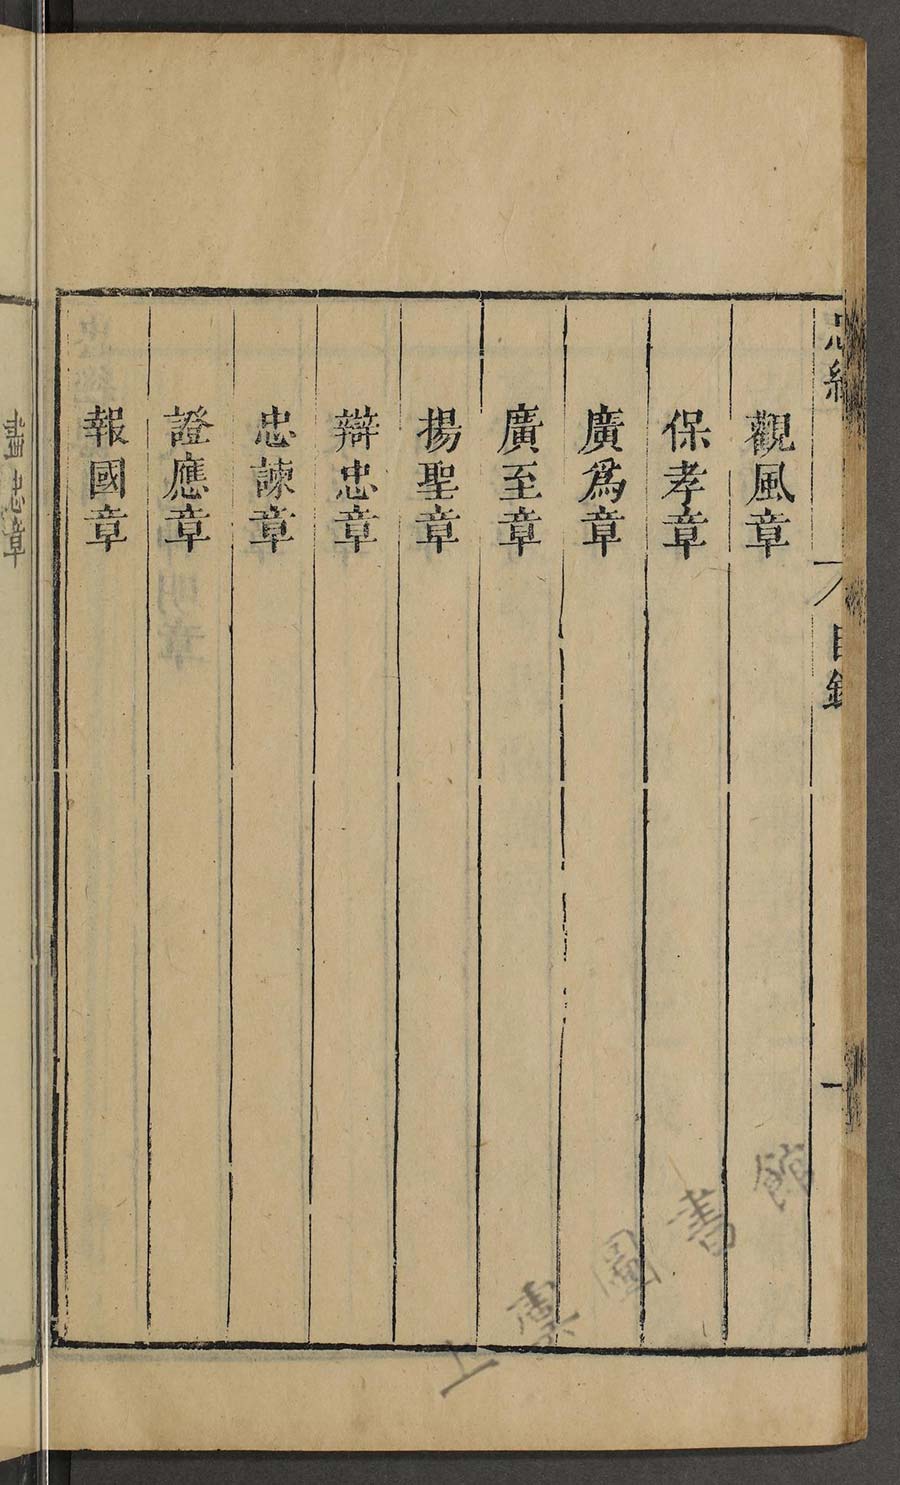 忠經
目錄
一
觀風章
保孝章
廣爲章
廣至章
揚聖章
辯忠章
忠諫章
證應章
報國章
盡忠章
上虞圖書館